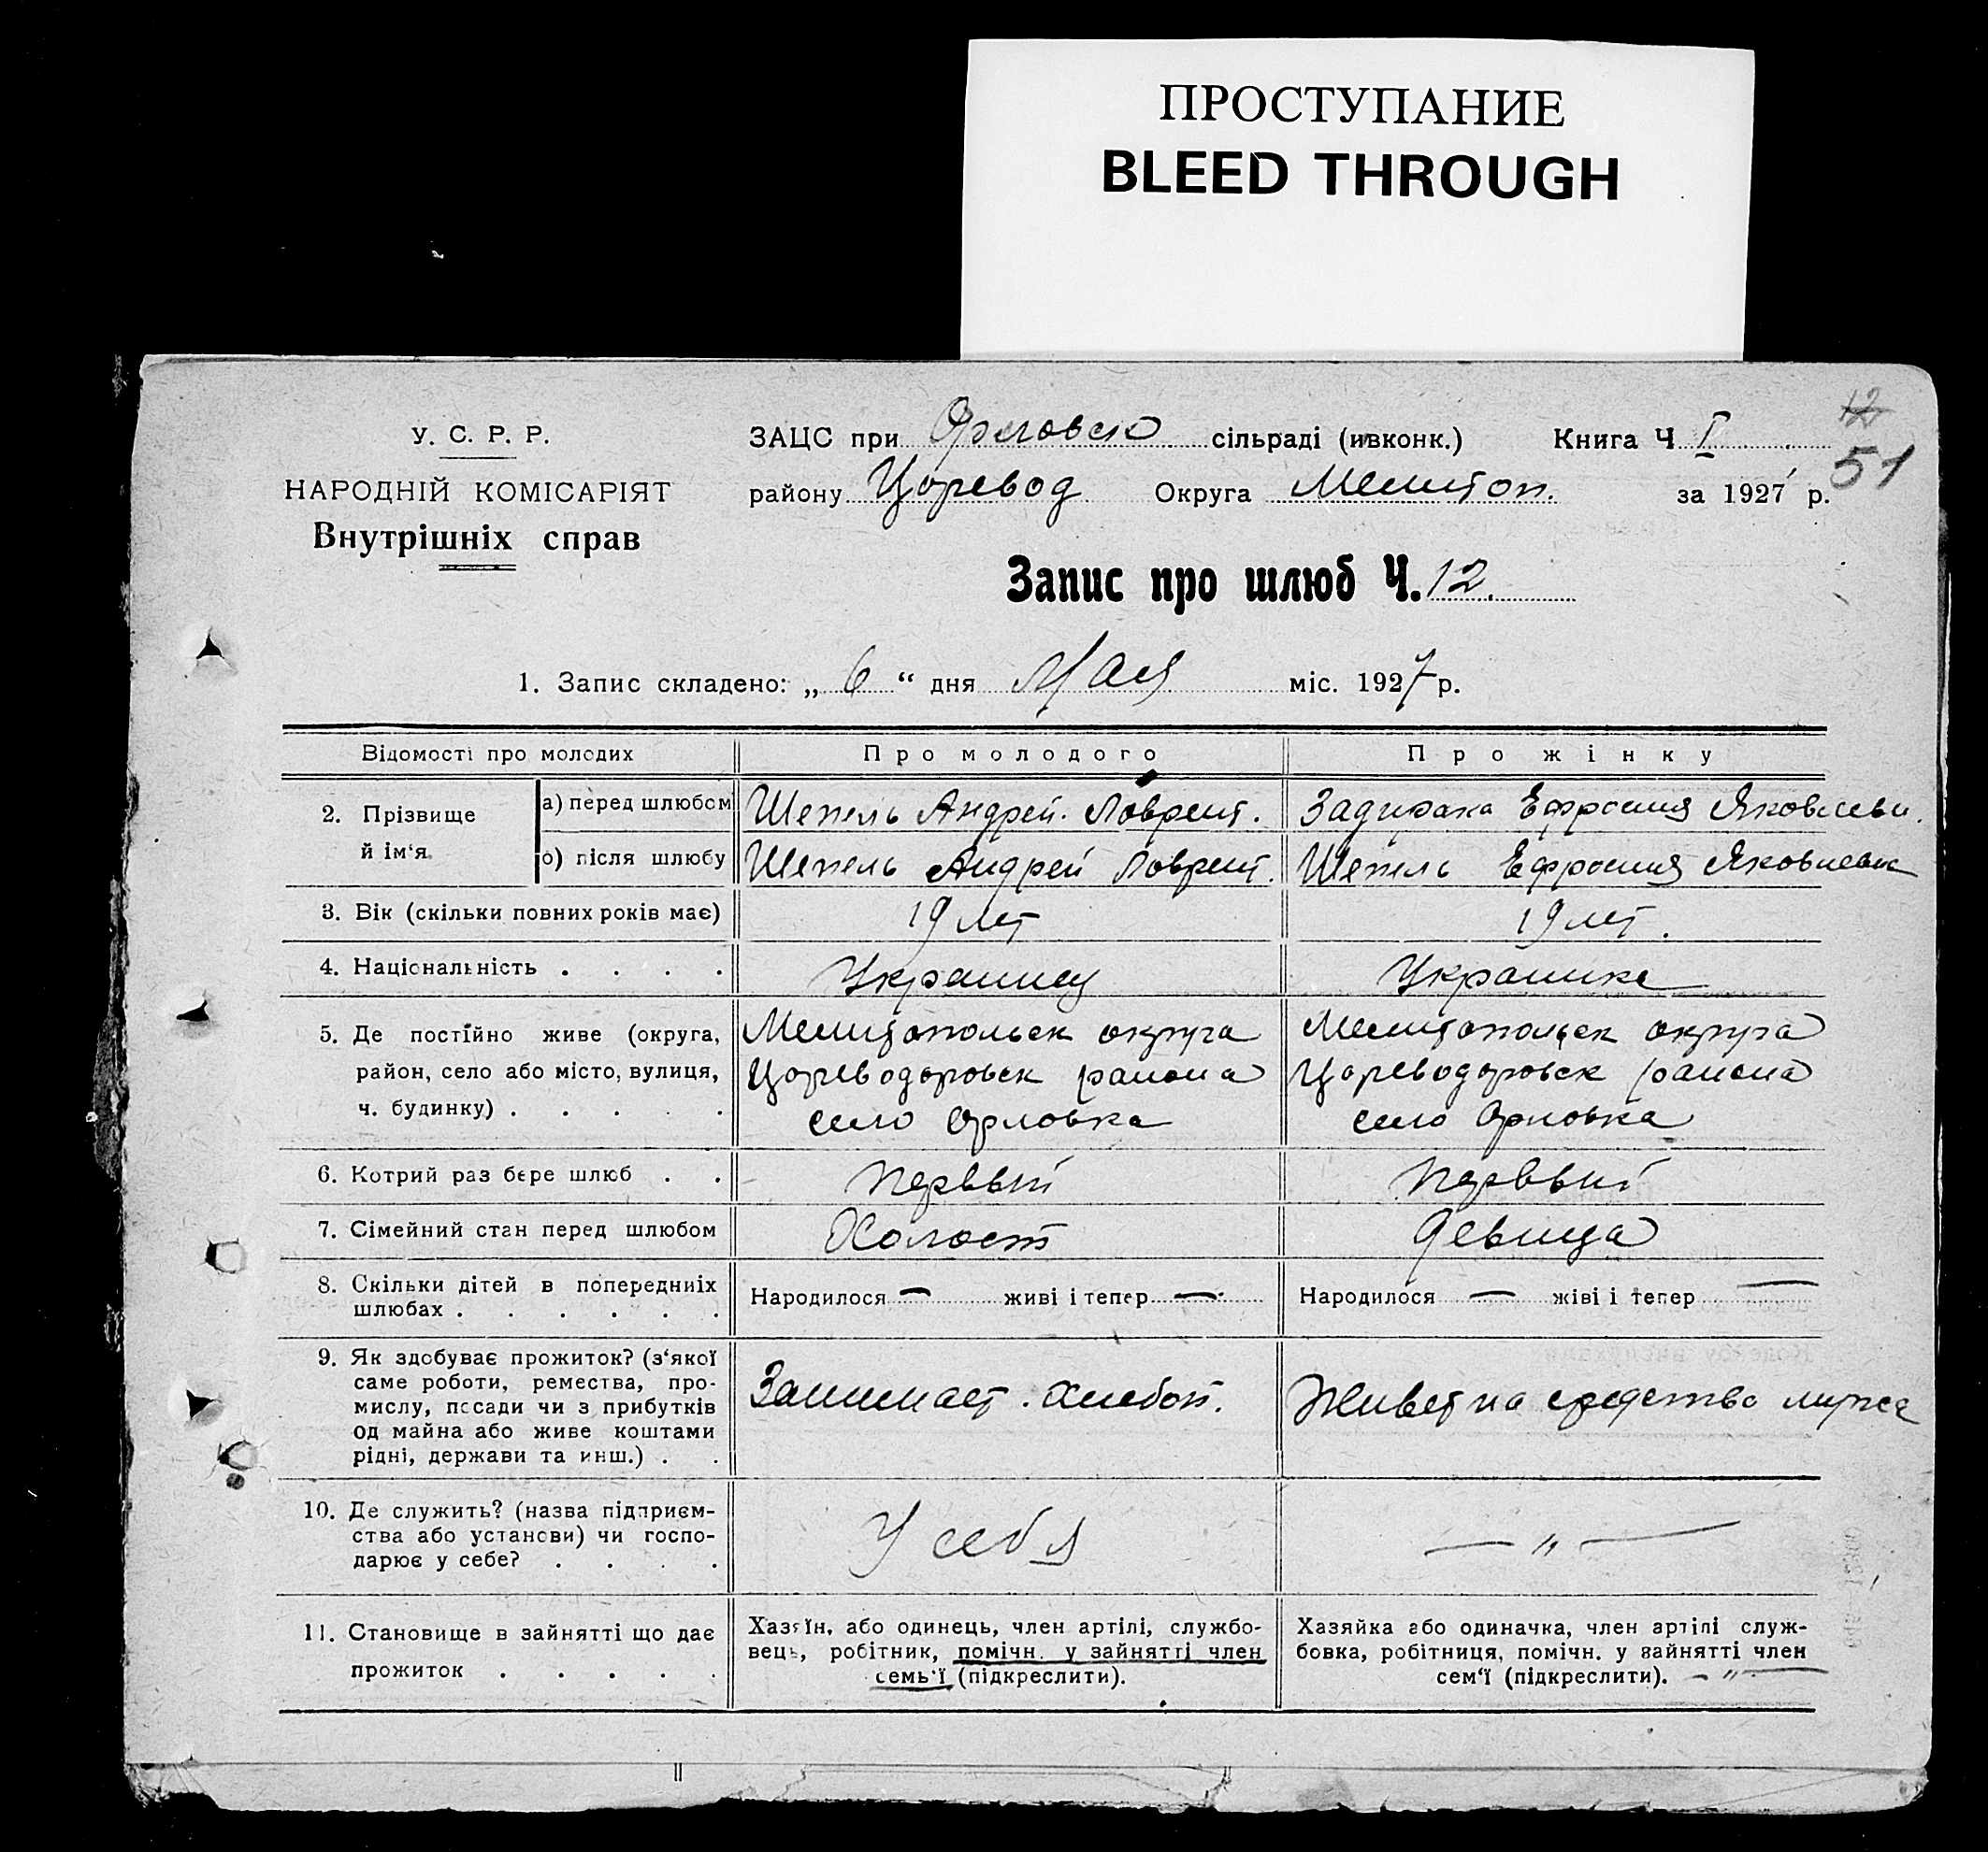 ПРОСТУПАНИЕ
BLEED THROUGH
12
51
У. С. Р. Р.
НАРОДНІЙ КОМІСАРІЯТ
Внутрішніх справ
ЗАЦС при Орловско сільраді (ивконк.) Книга Ч I
району Царевод Округа Мелитоп. за 1927 р.
Запис про шлюб Ч. 12.
1. Запис складено: „ 6 “ дня Мая міс. 1927 р.
Відомості про молодих
Про молодого
Про жінку
2. Прізвище й ім‘я
а) перед шлюбом
Шепель Андрей. Лаврент.
Задирака Ефросиия Яковлевн.
о) після шлюбу
Шепель Андрей Лаврент.
Шепель Ефросиия Яковлевн
3. Вік (скільки повних років має)
19 лет
19 лет.
4. Національність . . . .
Украинец
Украинка
5. Де постійно живе (округа,
район, село або місто, вулиця,
ч. будинку) . . . . .
Мелитопольск округа
Цареводаровск района
село Орловка
Мелитопольск округа
Цареводаровск района
село Орловка
6. Котрий раз бере шлюб . .
первый
первый
7. Сімейний стан перед шлюбом
Холост
девица
8. Скільки дітей в попередниіх
шлюбах . . . . . .
Народилося — живі і тепер —
Народилося — жіві і тепер —
9. Як здобуває прожиток? (з‘якої
саме роботи, ремества, про-
мислу, посади чи з прибутків
од майна або живе коштами
рідні, держави та инш.) . .
Занимает. хлебоп.
Живет на средства мужа
10. Де служить? (назва підприєм-
ства або установи) чи госпо-
дарює у себе? . . . .
У себя
— „ —
11. Становище в зайнятті що дає
прожиток . . . . .
Хазяїн, або одинець, член артілі, службо-
вець, робітник, помічн. у зайнятті член
семь‘ї (підкреслити).
Хазяйка або одиначка, член артілі служ-
бовка, робітниця, помічн. у зайнятті член
сем‘ї (підкреслити). — „ —